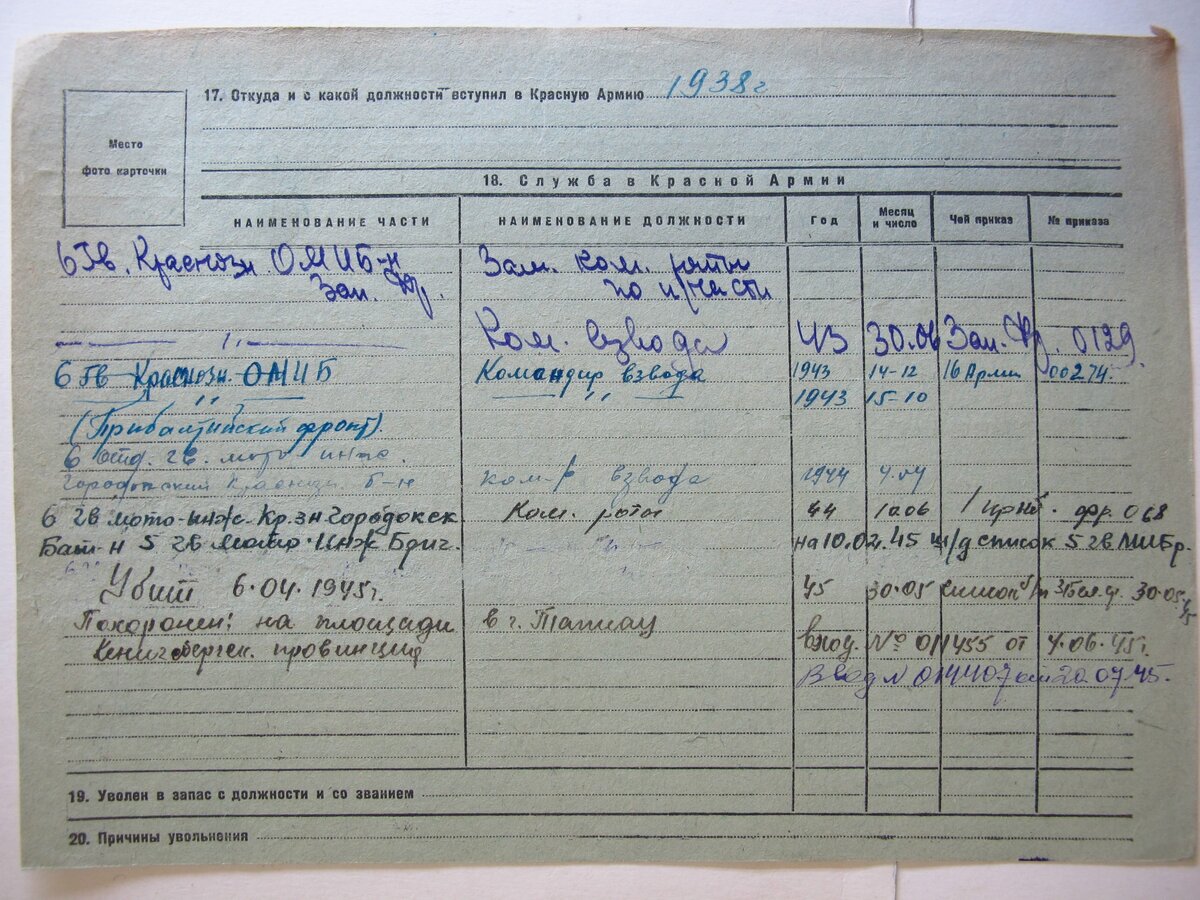 Место
фото карточки
17. Откуда и с какой должности вступил в Красную Армию 1938г
18. Служба в Красной Армии
НАИМЕНОВАНИЕ ЧАСТИ НАИМЕНОВАНИЕ ДОЛЖНОСТИ Год Месяц и число Чей приказ № приказа
6 Гв. Краснозн ОМИБ-н Зам. ком. роты
Зап. Фр. по п/части
— " — Ком. взвода 43 30.06 Зап. Фр. 0129
6 Гв Краснозн. ОМИБ Командир взвода 1943 14-12 16 Арми 00274.
— " — — " — 1943 15-10
(Прибалтийский фронт)
6 отд. гв. мото инж.
Городокский Краснозн. б-н ком-р взвода 1944 4.04
6 гв мото-инж. Кр.зн Городокск. Ком. роты 44 10.06 1 Приб. фр. 068
Бат-н 5 гв мото-инж Бриг. на 10.02.45 ш/д список 5 гв МИБр.
Убит 6.04.1945г. 45 30.05 список б/н 3 Бел.ф. 30.05.45
Похоронен: на площади в г. Тапиау
Кенигсберген. провинция вход. № 011455 от 4.06.45г.
Вход № 014407 от 20.07.45.
19. Уволен в запас с должности и со званием
20. Причины увольнения